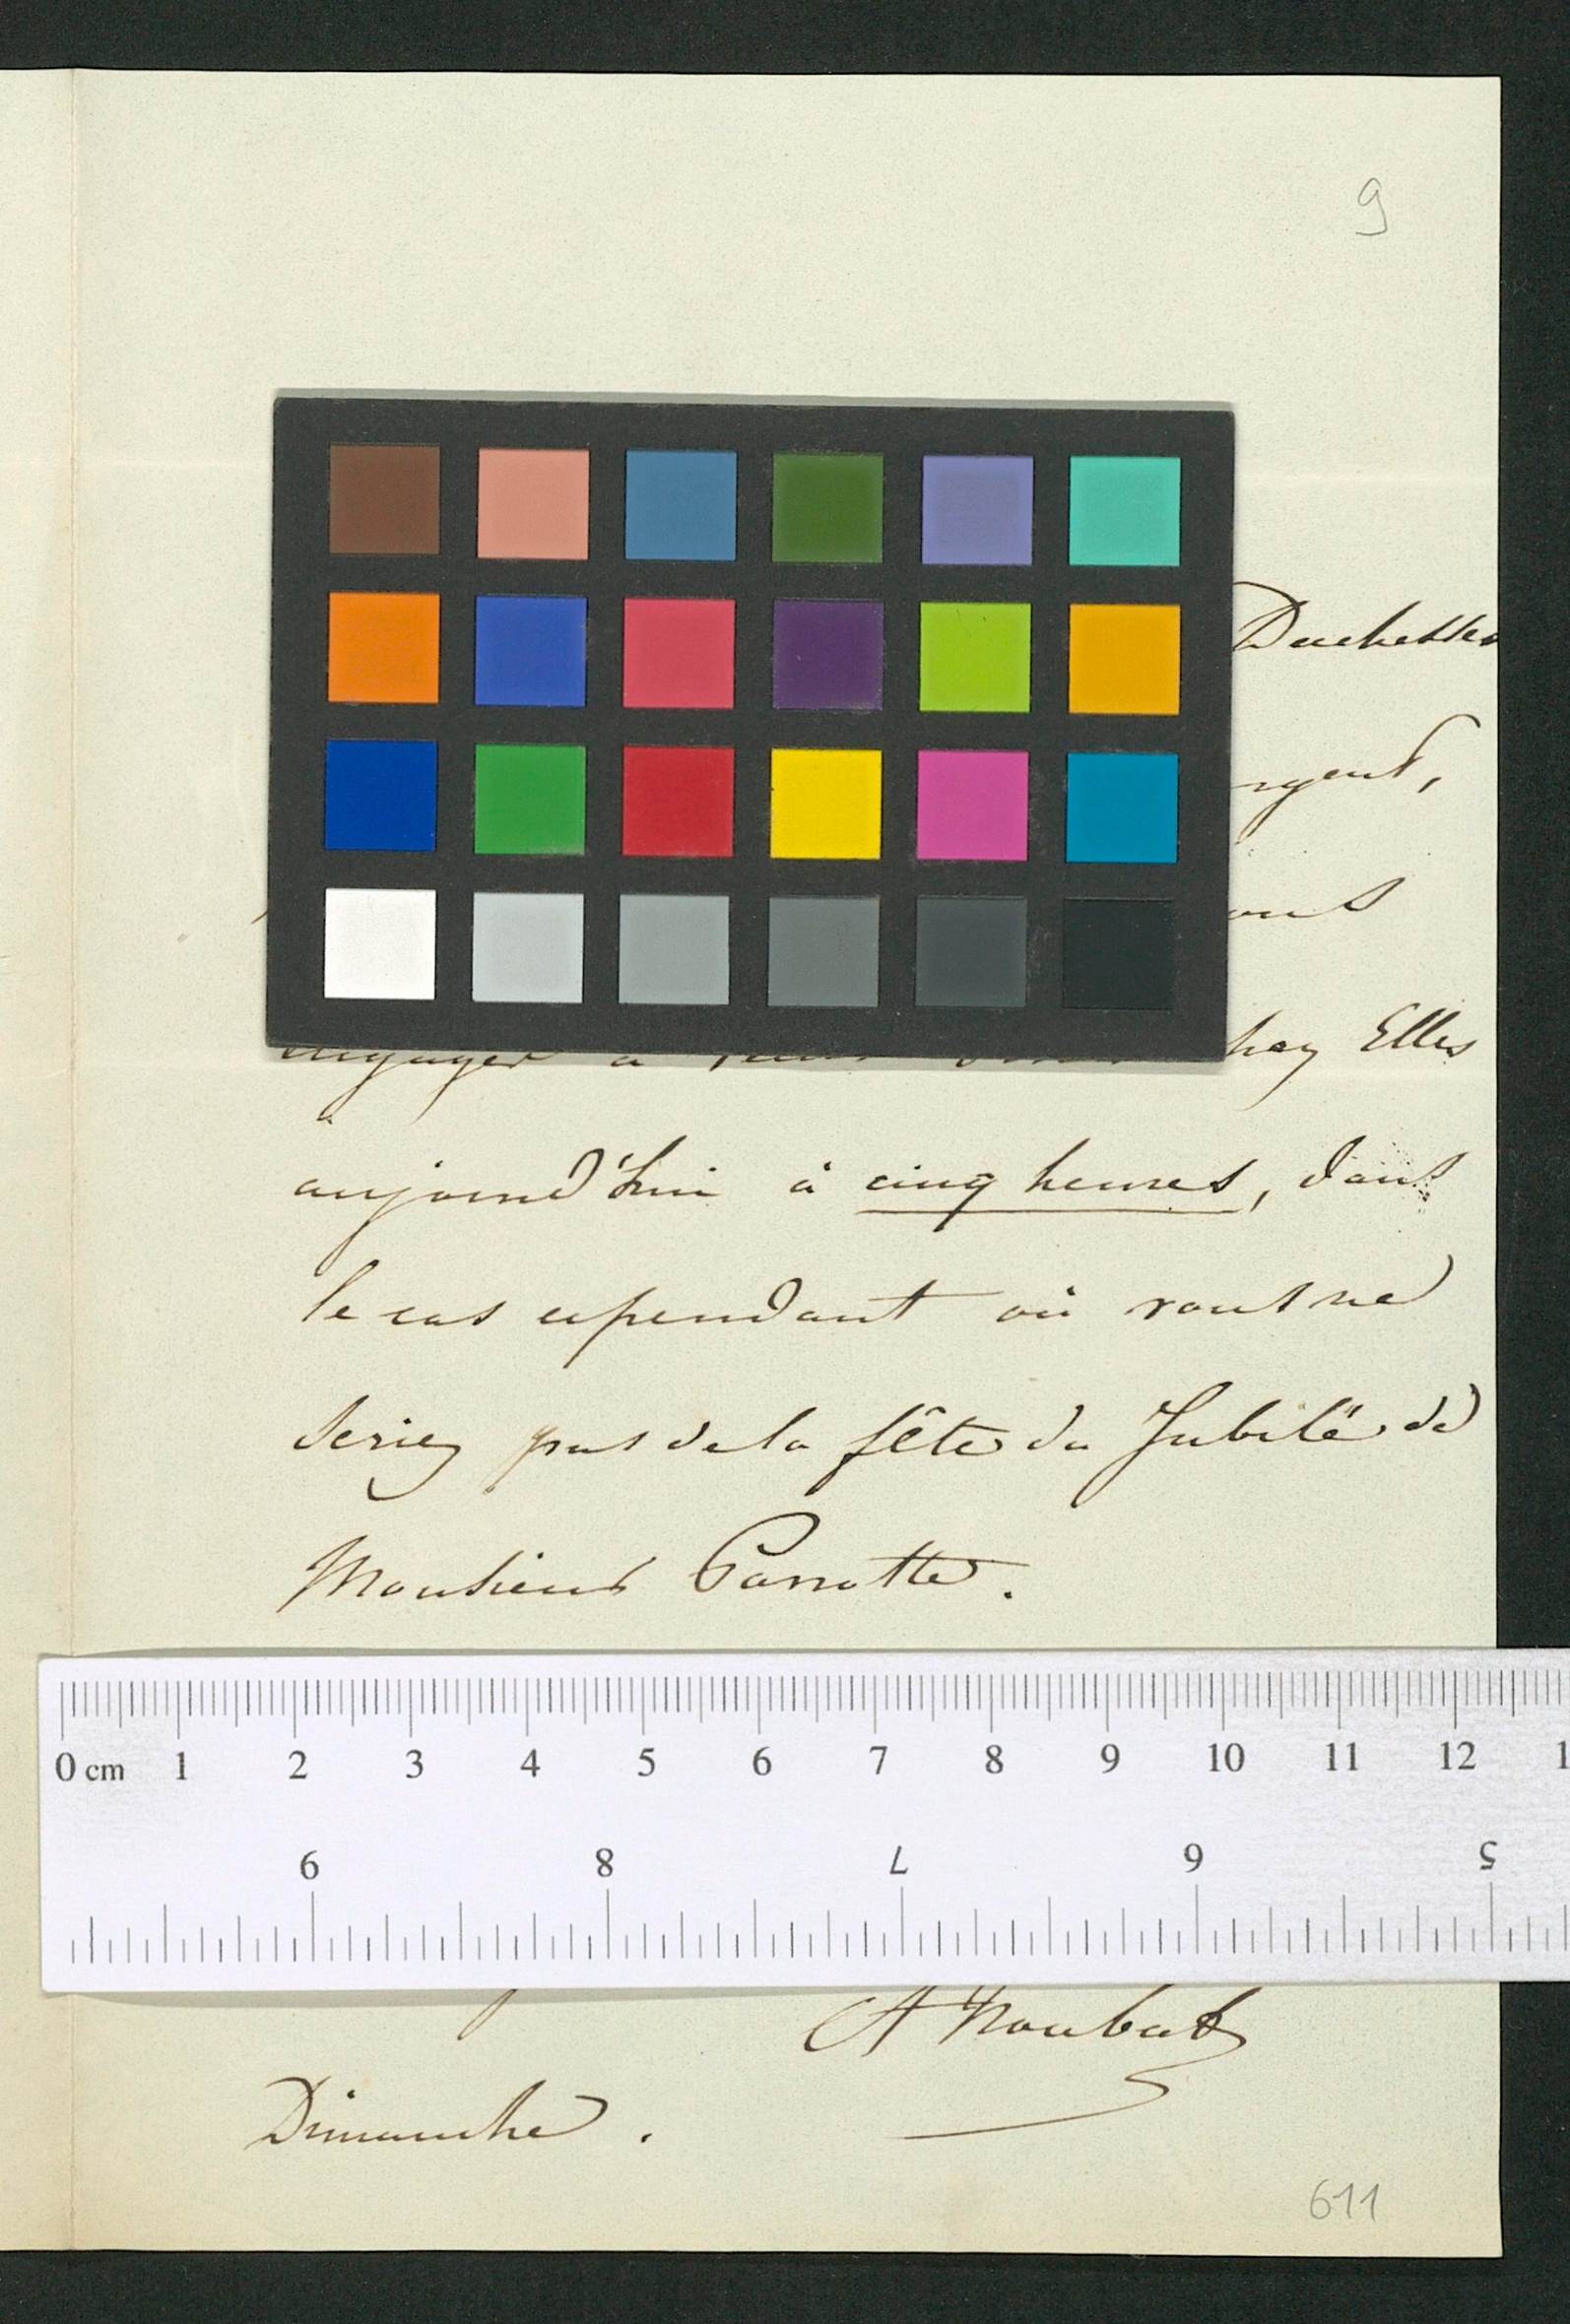 9
Duchesse
rgent,
ous
engager à chez Elles
aujourd'hui à cinq heures, dans
le cas cependant où vous ne
seriez pas de la fête du Jubilé de
Monsieur Parrotte.
0 cm 1 2 3 4 5 6 7 8 9 10 11 12 1
9 8 7 6 5
Dimanche.
611